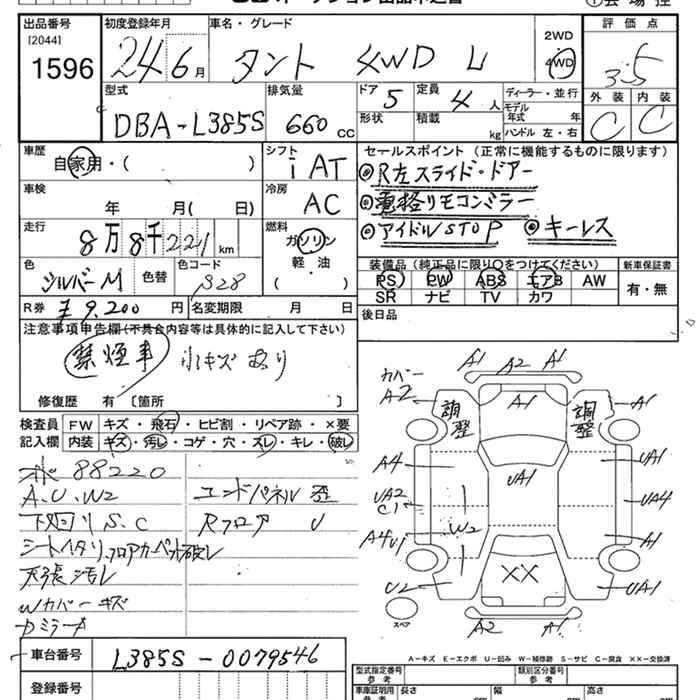 出品番号
[2044]
1596
初度登録年月
24 6月
車名・グレード
タント 4WD L
2WD
4WD
評価点
3.5
型式
DBA-L385S
排気量
660 CC
ドア
5
定員
4人
形状
積載
kg
ディーラー・並行
モデル
年式 年
ハンドル 左・右
外装
内装
C
C
車歴
自家用・( )
シフト
iAT
車検
年 月( 日)
冷房
AC
走行
8万8千221km
燃料
ガソリン
軽・油
( )
色
シルバーM
色替
色コード
S28
R券 ¥9,200円
名変期限 月 日
セールスポイント (正常に機能するものに限ります)
◎R左スライド・ドアー
◎電格リモコンミラー
◎アイドルSTOP ◎キーレス
装備品(純正品に限り○をつけてください)
新車保証書
PS PW ABS エアB AW
SR ナビ TV カワ
有・無
後日品
注意事項申告欄(不具合内容等は具体的に記入して下さい)
禁煙車 小キズあり
修復歴 有〔箇所 〕
検査員
記入欄
FW キズ・飛石・ヒビ割・リペア跡・×要
内装 キズ・汚レ・コゲ・穴・スレ・キレ・破レ
88220
A.U.W2
下廻りS.C
シートヘタリ、フロアカーペット破レ
天張汚レ
Wカバーキズ
ミラーA
エンドパネル歪
Rフロア U
カバー
A2
A1
A2
A1
調整
A1
調整
A1
A4
UA1
UA1
UA2
C1
W2
UA4
A4U1
A1
XX
U2
UA1
スペア
A2
A1
A-キズ E-エクボ U-凹み W-補修跡 S-サビ C-腐食 XX-交換済
車台番号
L385S-0079546
登録番号
型式指定番号
参考
類別区分番号
参考
車庫証明用
参考
長さ
cm
幅
cm
高さ
cm